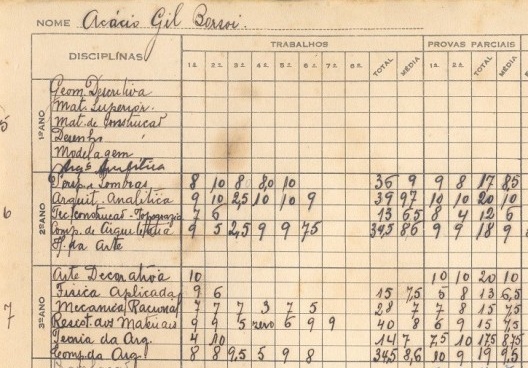 NOME Acácio Gil Borsoi.
DISCIPLINAS TRABALHOS PROVAS PARCIAIS
1ª 2ª 3ª 4ª 5ª 6ª 7ª 8ª TOTAL MÉDIA 1ª 2ª TOTAL MÉDIA
1º ANO
Geom. Descritiva
Mat. Superior.
Mat. de Construcao
Desenho
Modelagem
Analitica
5
2º ANO
Persp. e Sombras 8 10 8 8,0 10 36 9 9 8 17 8,5
Arquit. Analitica 9 10 2,5 10 10 9 39 97 10 10 20 10
6 Tec. construcao - Topografia 7 6 13 65 8 4 12 6
Comp. de Arquitetura 9 5 2,5 9 9 75 34,5 86 9 9 18 9
H. da Arte
3º ANO
Arte Decorativa 10 10 10 20 10
Fisica Aplicada 9 6 15 7,5 5 8 13 6,5
7 Mecanica Racional 7 7 7 3 7 5 28 7 7 8 15 7,5
Resist. dos Materiais 9 9 5 zero 6 9 9 40 8 6 9 15 7,5
Teoria da Arq. 4 10 14 7 7,5 10 17,5 8,75
Comp. da Arq. 8 8 9,5 5 9 8 34,5 8,6 10 9 19 9,5